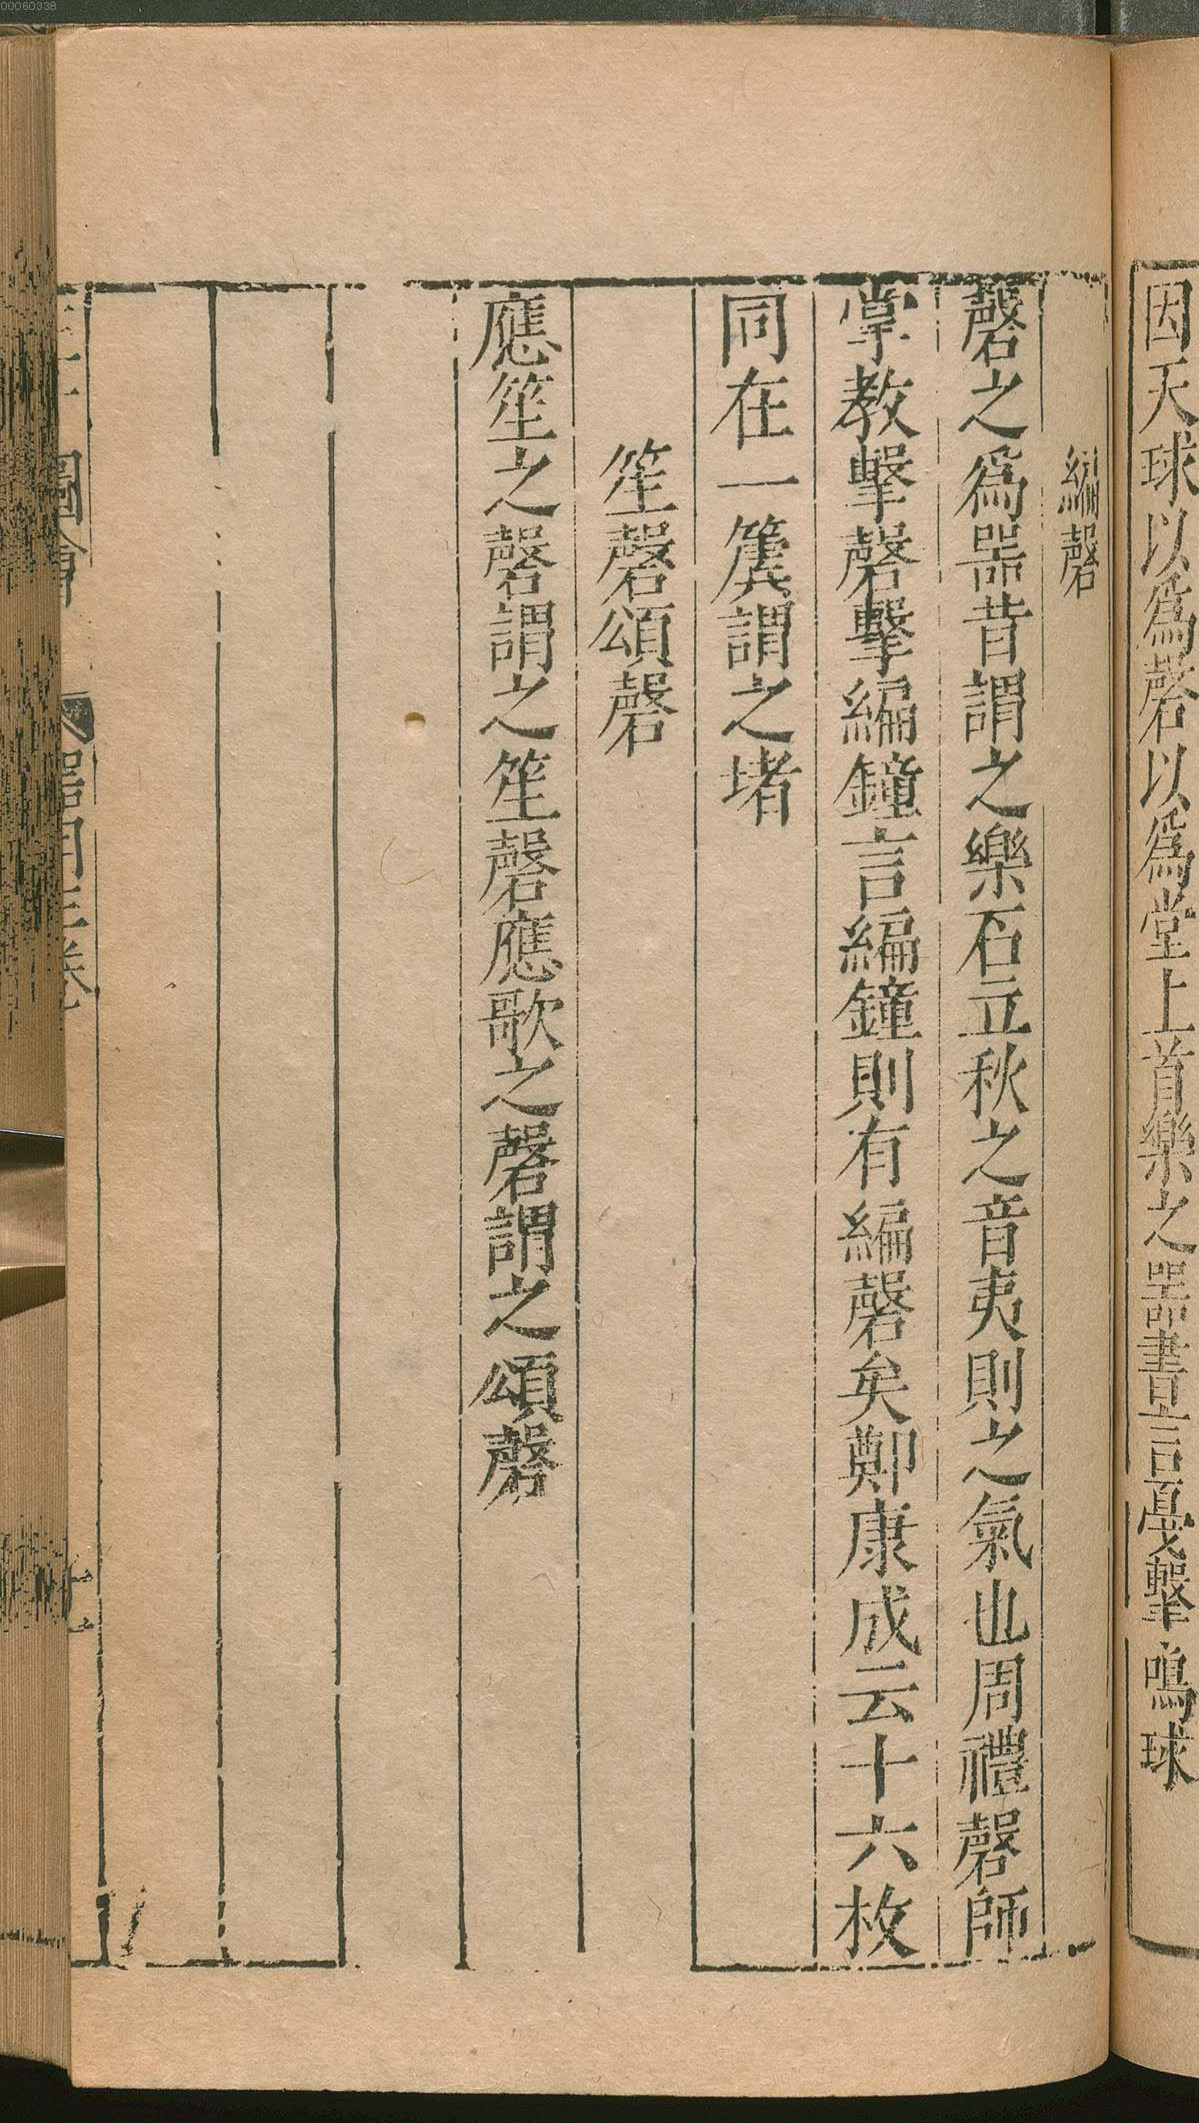 因天球以爲磬以爲堂上首樂之器書言戛擊鳴球
編磬
磬之爲器昔謂之樂石立秋之音夷則之氣也周禮磬師
掌教擊磬擊編鐘言編鐘則有編磬矣鄭康成云十六枚
同在一簴謂之堵
笙磬頌磬
應笙之磬謂之笙磬應歌之磬謂之頌磬
圖會 器用三卷
00060338